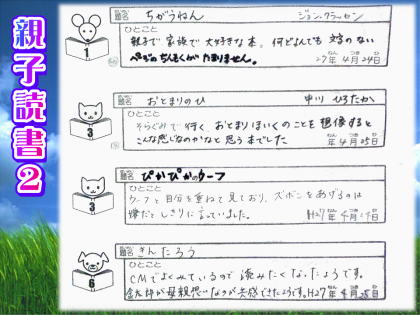 親子読書2
1
題名 ちがうねん ジョン・クラッセン
ひとこと
親子で家族で大好きな本。何どよんでも文のない
ページのちんもくがたまりません。
27年4月24日
3
題名 おとまりのひ 中川ひろたか
ひとこと
そらぐみで行くおとまりほいくのことを想像すると
こんな感じなのかなと思うまでした
年4月25日
3
題名 ぴかぴかのウーフ
ひとこと
ウーフと自分を重ねて見ており、ズボンをあげるのは
嫌だとしきりに言っていました。
H27年4月17日
6
題名 きんたろう
ひとこと
CMでよくみているので読みたくなったようです。
金太郎が母親思いなのが共感できたようです。H27年4月25日